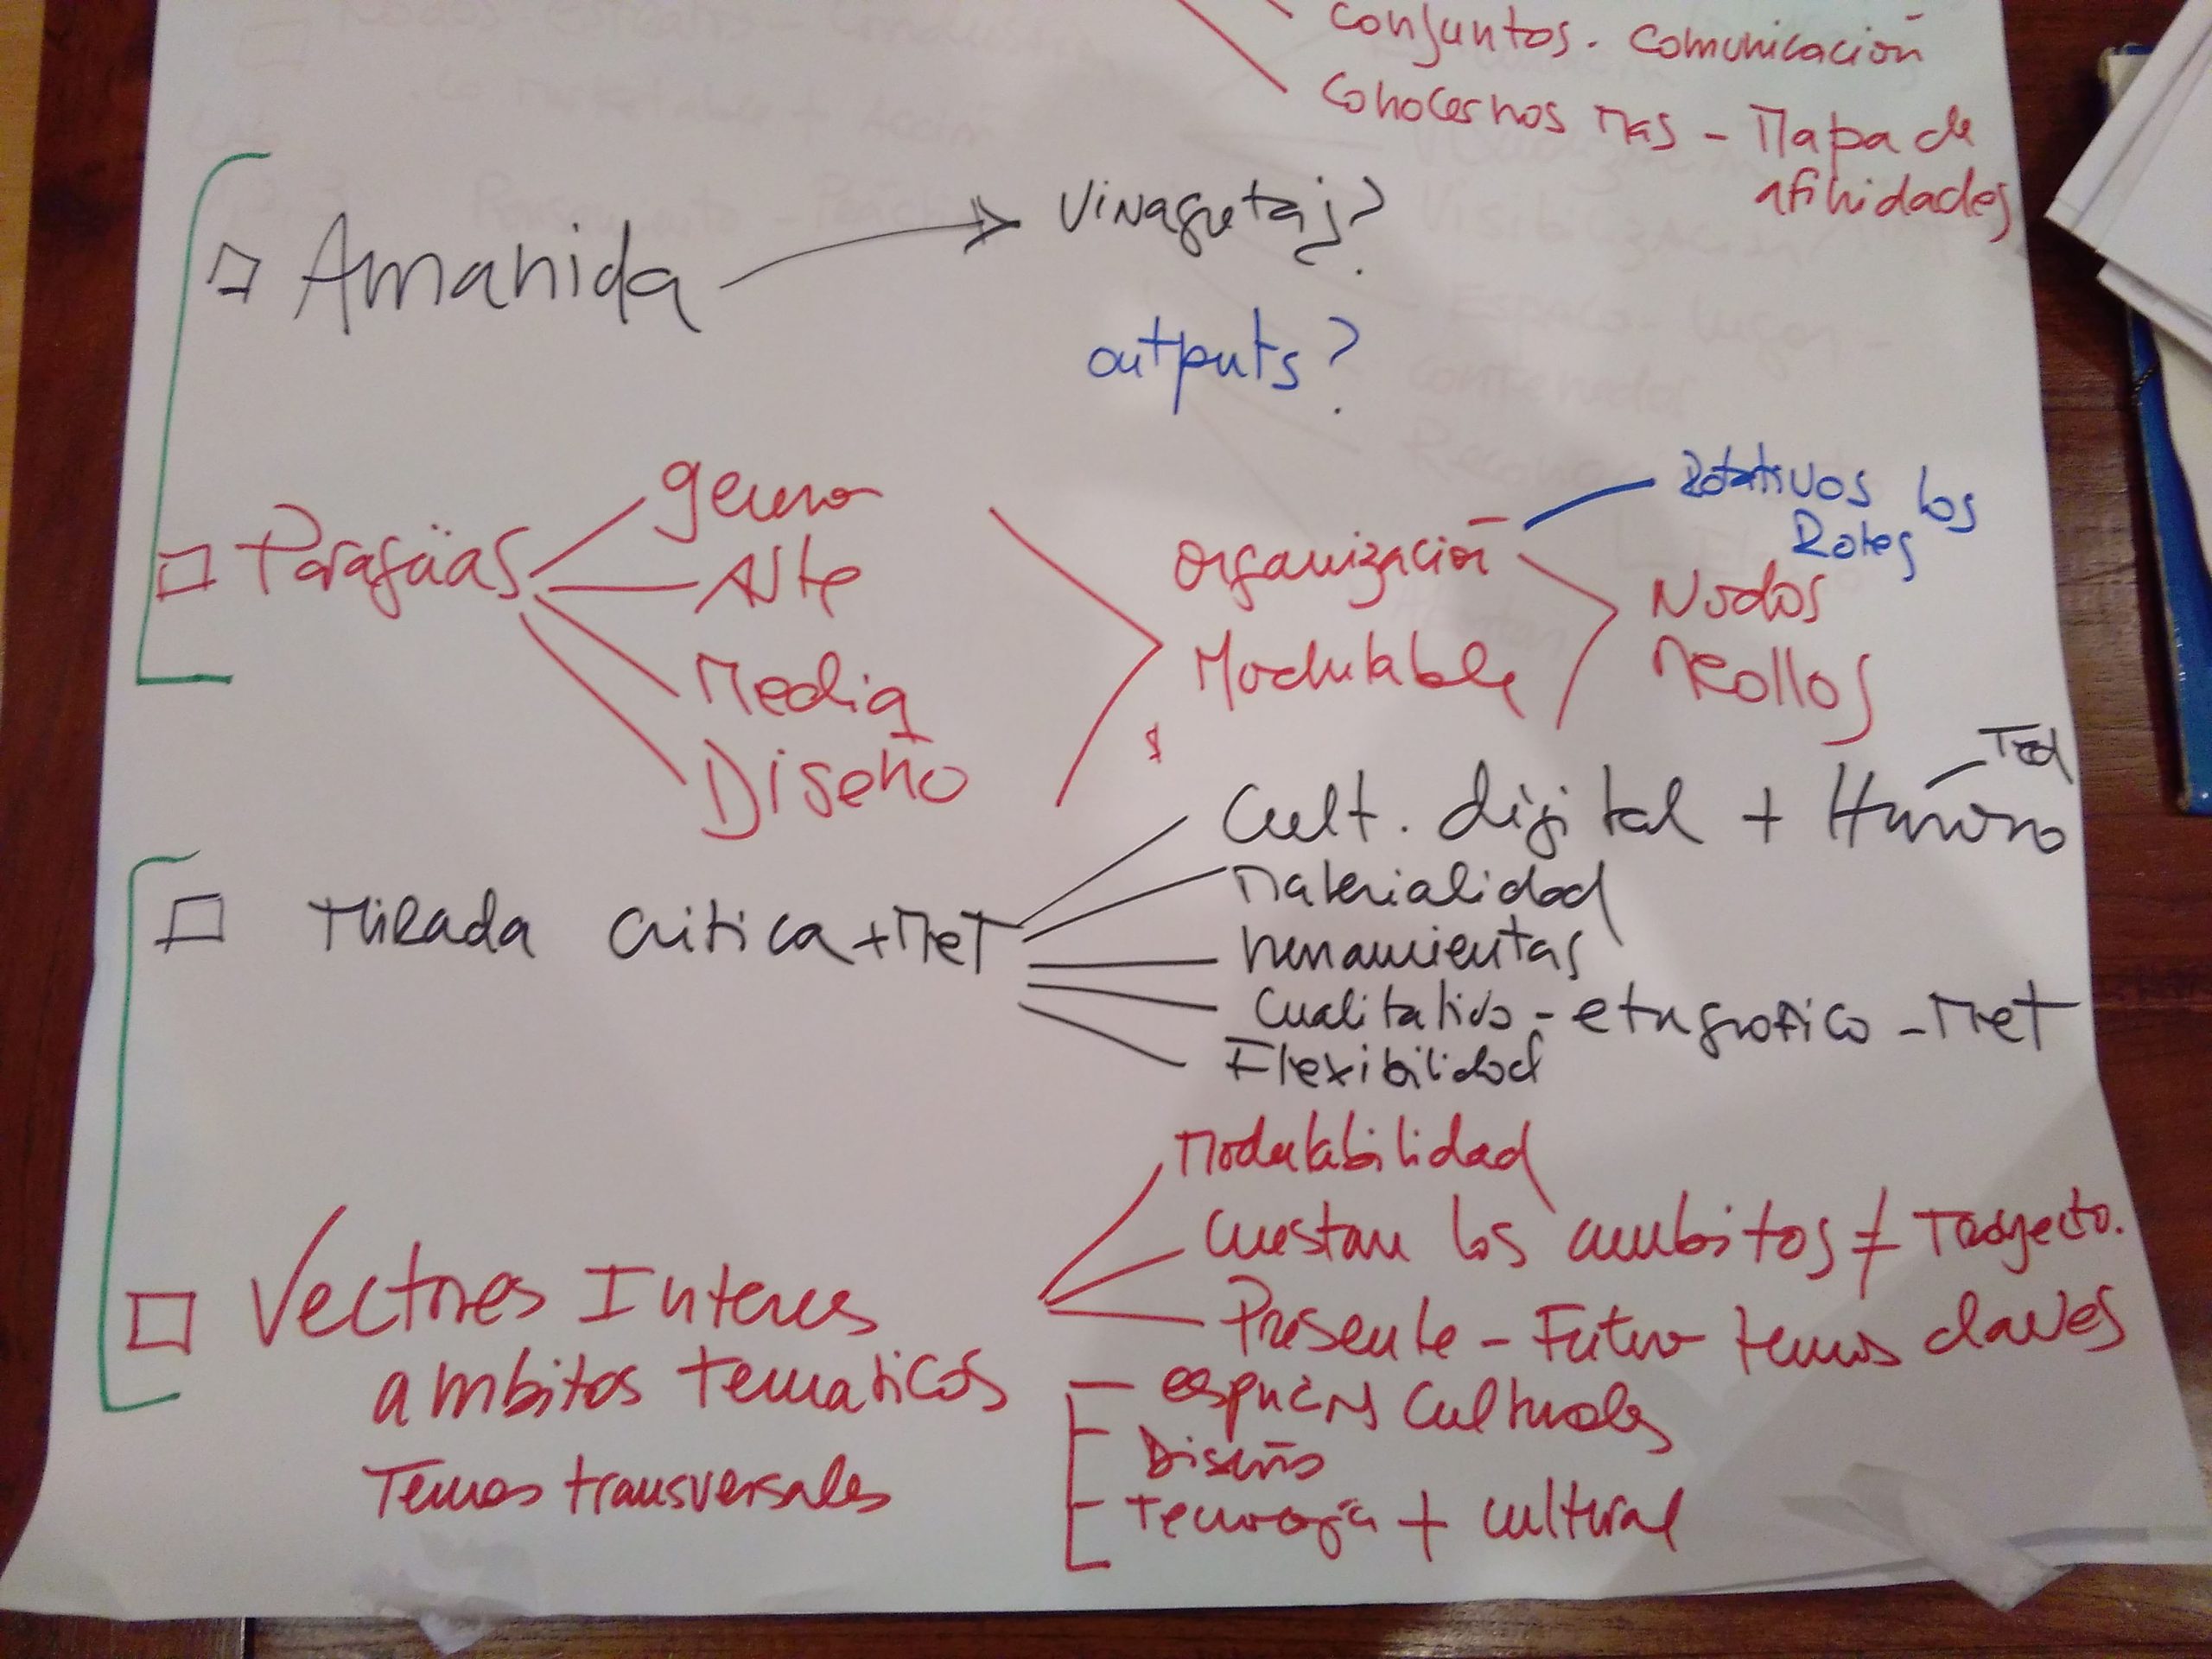 conjuntos. comunicación
conocernos mas - Mapa de
afinidades
Amanida
Vinagreta?
outputs?
Paragüas
genero
Arte
Media
Diseño
organización
Modulable
Rotativos los
Roles
Nodos
Rollos
Cult. digital + Humano
Materialidad
herramientas
Cualitativo - etngrafico - Met
Flexibilidad
Mirada critica + Met
Modulabilidad
los ambitos ≠ Trayecto.
Presente - Futuro temas claves
Vectores Interes
ambitos tematicos
Temas transversales
espacios Culturales
Diseño
Tecnología + cultural